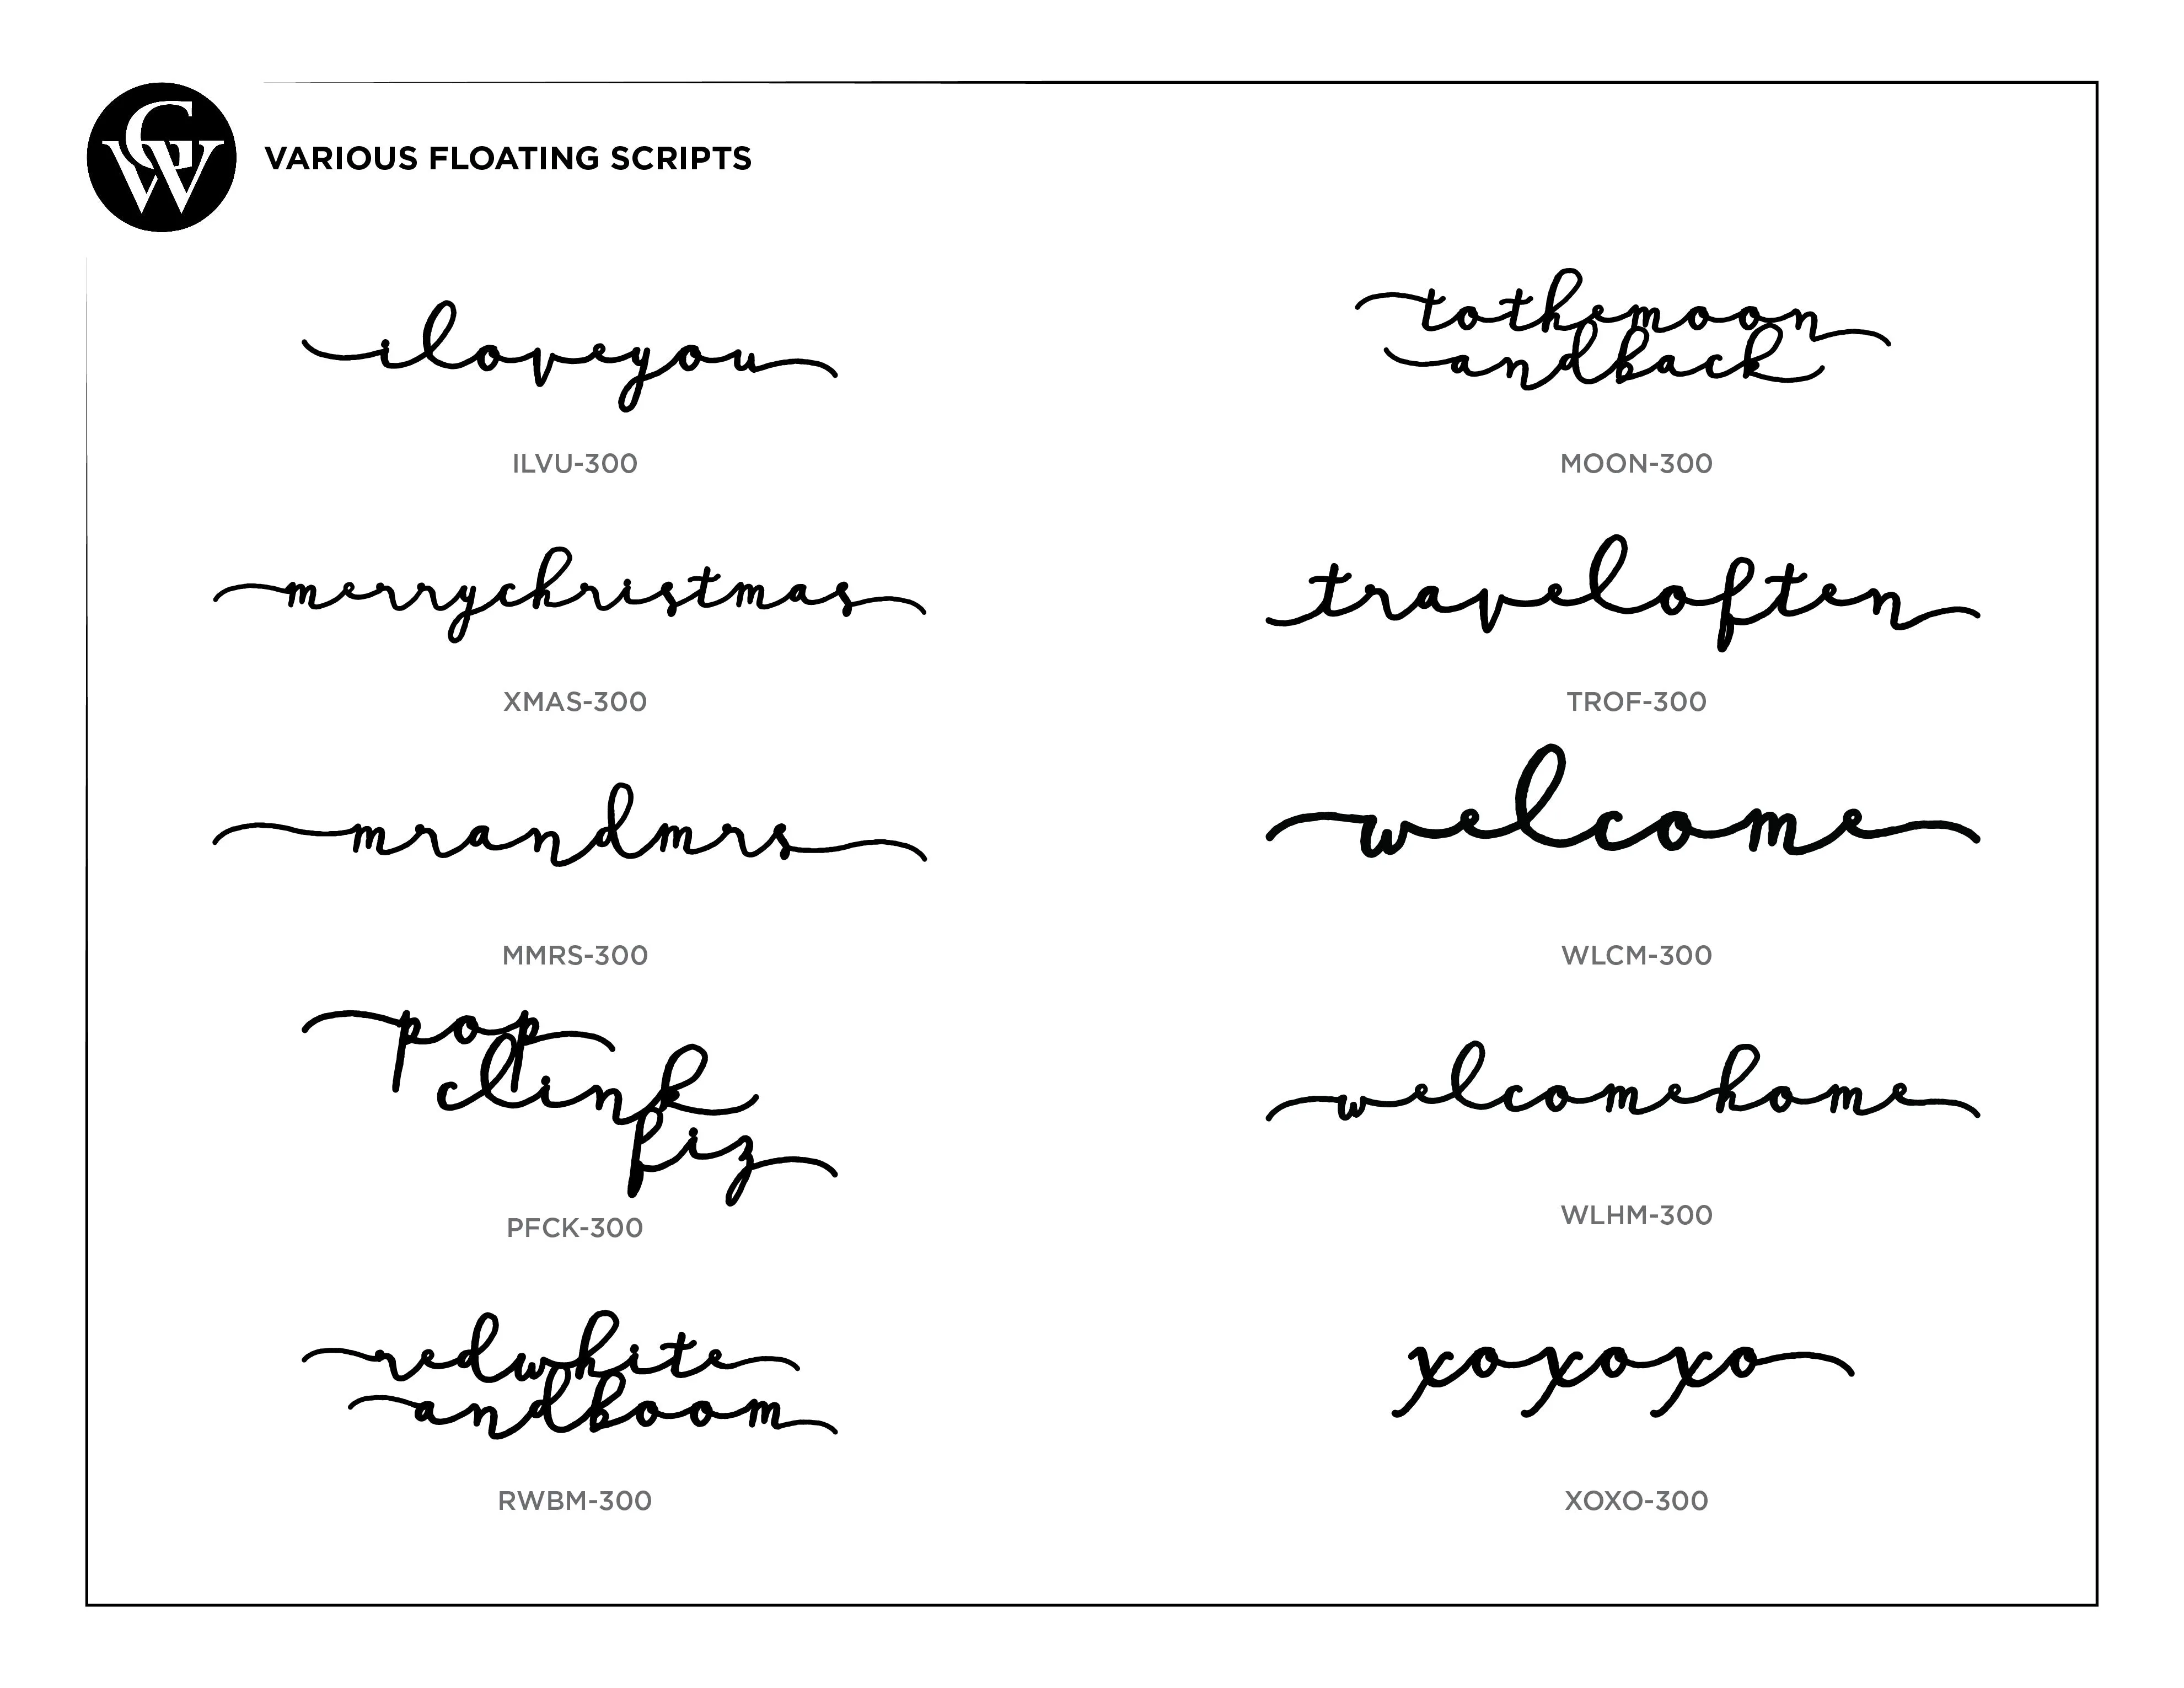 CW
VARIOUS FLOATING SCRIPTS
iloveyou
ILVU-300
tothemoon
andback
MOON-300
merrychristmas
XMAS-300
traveloften
TROF-300
mrandmrs
MMRS-300
welcome
WLCM-300
pop
clink
fiz
PFCK-300
welcomehome
WLHM-300
redwhite
andboom
RWBM-300
xoxoxo
XOXO-300